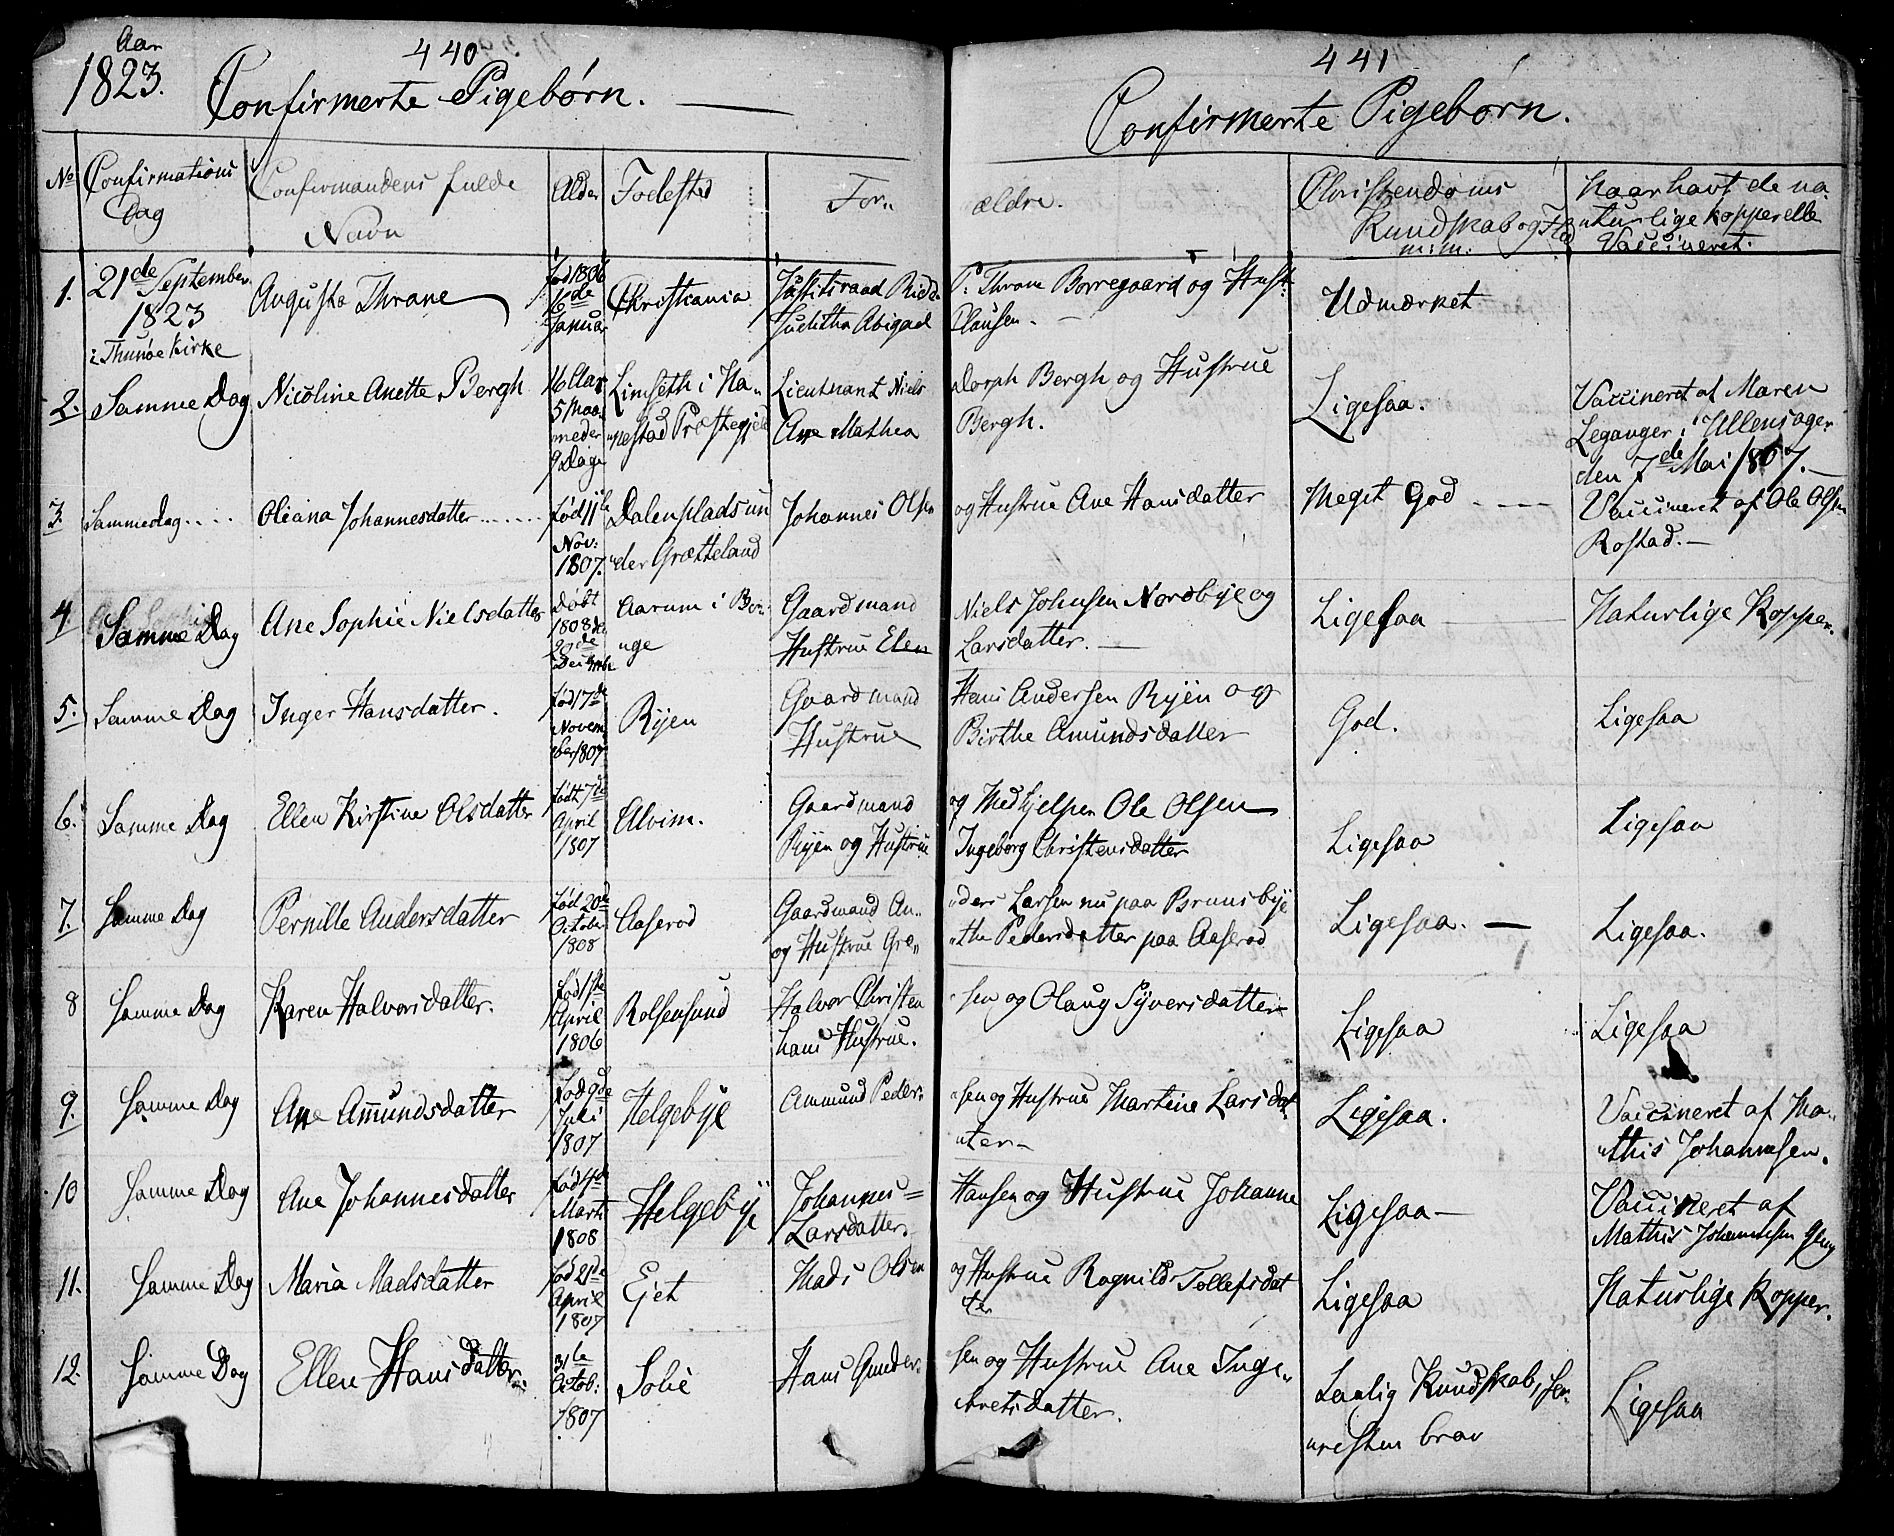 Aar
1823.
440
Confirmerte Pigebørn.
No
Confirmations
Dag
Confirmandens fulde
Navn
Alder
Fødested
For„
1.
21de September
1823
i Thunøe Kirke
Augusta Thrane
fød 1806
16de
Januar
Christiania
Justitsraad
Juditha Abigael
2.
Samme Dag
Nicoline Anette Bergh
16 Aar
5 Maa„
neder
9 Dage
Limseth i Na„
„nestad Præstegjeld
Lieutnant Niels
Ane Mathea
3.
Samme dag....
Oliana Johannesdatter......
fød 11te
Nov:
1807.
Dalen plads un
„der Grætteland
Johannes Olsen
4.
Samme Dag
Ane Sophie Nielsdatter
Døbt
1808 de
20de
Decemb
Aarum i Bor„
„ge
Gaardmand
Hustrue Elen
5.
Samme Dag
Inger Hansdatter.
fød 17de
Novem
ber 1807
Ryen
Gaardmand
Hustrue
6.
Samme Dag
Ellen Kirstine Olsdatter
født 7de
April
1807
Alvim.
Gaardmand
Ryen og Hustrue
7.
Samme Dag
Pernille Andersdatter
fød 20de
October
1808
Aaserød
Gaardmand An„
og Hustrue Gre„
8
Samme Dag
Karen Halvorsdatter.
fød 1ste
April
1806
Rolfsensund
Halvor Christen
hans Hustrue.
9.
Samme Dag
Ane Amundsdatter
fød 9de
Juli
1807
Helgebye
Ammund Peder„
10
Samme Dag
Ane Johannesdatter
fød 4de
Marts
1808
Helgebye
Johannes=
Larsdatter.
11.
Samme Dag
Maria Madsdatter
fød 21de
April
1807
Ejet
Mads Olsen
12.
Samme Dag
Ellen Hansdatter
31te
Octob:
1807
Solie
Hans Gunder„
441
Confirmerte Pigebørn.
ældre.
Christendoms
Kundskab og Flid
m: m:
Naar havt de na
„turlige kopper elle
Vaccineret.
P: Thrane Borregaard og Hust:
Clausen.
Udmærket
Dorph Bergh og Hustrue
Bergh.
Ligesaa.
Vaccineret af Maren
Leganger i Ullensager
den 7de Mai 1807.
og Hustrue Ane Hansdatter
Meget God
Vaccineret af Ole Olsen
Rostad.
Niels Johnsen Nordbye og
Larsdatter.
Ligesaa
Naturlige Kopper.
Hans Andersen Ryen og
Birthe Amundsdatter
God.
Ligesaa
og Medhjelper Ole Olsen
Ingeborg Christensdatter
Ligesaa
Ligesaa
„ders Larsen nu paa Brunsbye
„the Pedersdatter paa Aaserød
Ligesaa.
Ligesaa.
sen og Olaug Syversdatter
Ligesaa
Ligesaa
„sen og Hustrue Martine Larsdat
„ter
Ligesaa.
Vaccineret af Ma„
„this Johannesen.
Hansen og Hustrue Johanne
Ligesaa
Vaccineret af
Mathis Johannesen
og Hustrue Ragnild Tollefsdat
ter
Ligesaa
Naturlige Kopper.
sen og Hustrue Ane Inge„
„bretsdatter.
Laalig Kundskab, for„
„resten brav
Ligesaa